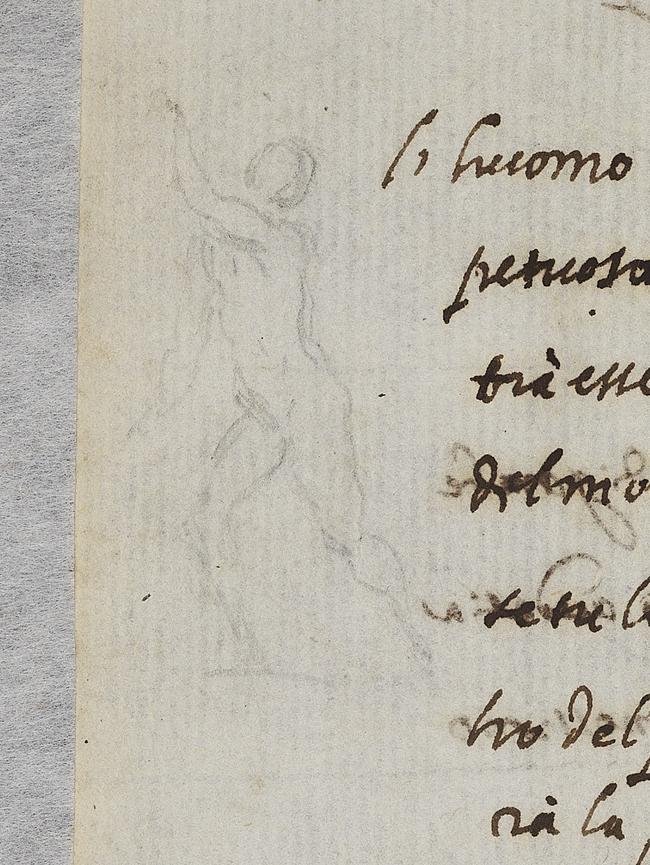 si huomo
petuosa
trà esse
del mo
se tu l
tro del
rà la